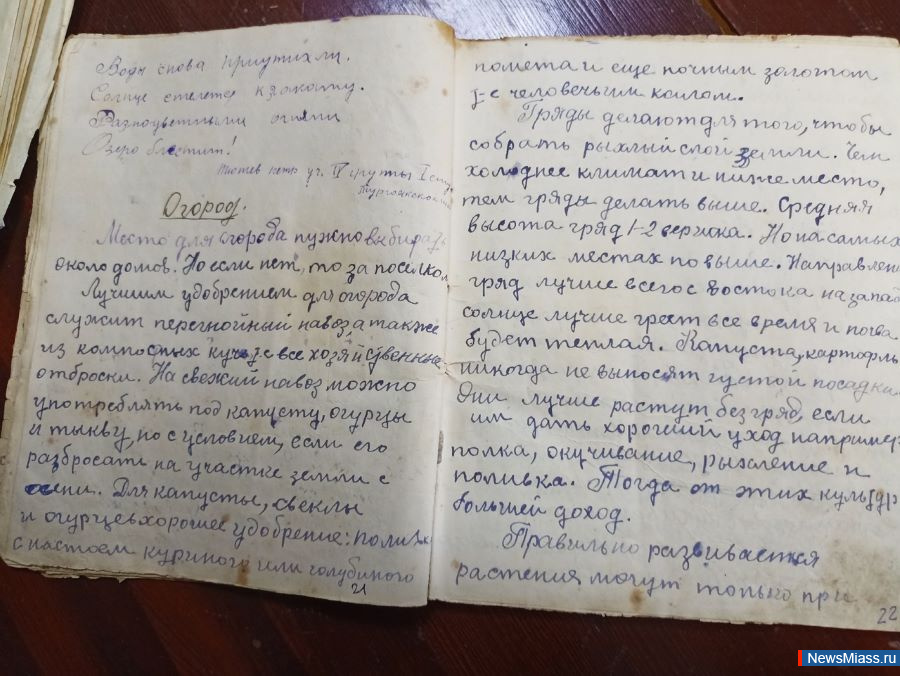 Воды снова приутихли.
Солнце стелется к закату.
Разноцветными огнями
Озеро блестит!
Тютев петр уч. IV группы I
Тургоякской
Огород.
Место для огорода нужно выбирать
около домов. Но если нет, то за поселком
Лучшим удобрением для огорода
служит перегнойный навоз а также
из компостных куч, т-е все хозяйственные
отброски. На свежий навоз можно
употреблять под капусту, огурцы
и тыкву, но с условием, если его
разбросать на участке земли с
осени. Для капусты, свёклы
и огурцев хорошее удобрение: поливка
с настоем куриного или голубиного
21
помета и еще ночным золотом
т-е человечьим калом.
Гряды делают для того, чтобы
собрать рыхлый слой земли. Чем
холоднее климат и ниже место,
тем гряды делать выше. Средняя
высота гряд 1-2 вершка. Но на самых
низких местах по выше. Направлен
гряд лучше всего с востока на запад
солнце лучше греет все время и почва
будет теплая. Капуста, картофль
никогда не выносят густой посадки.
Они лучше растут без гряд, если
им дать хороший уход например
полка, окучивание, рыхление и
поливка. Тогда от этих культур
большей доход.
Правильно развивается
растения, могут только при
22
NewsMiass.ru